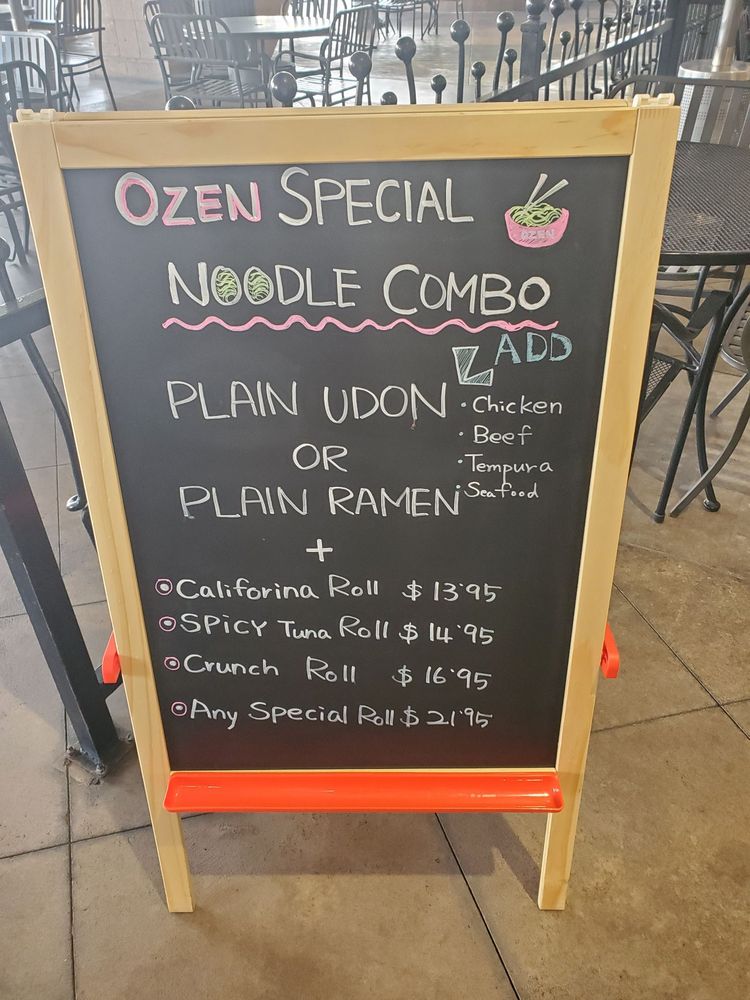 OZEN SPECIAL
OZEN
NOODLE COMBO
ADD
PLAIN UDON
OR
PLAIN RAMEN
· Chicken
· Beef
· Tempura
· Seafood
+
Califorina Roll $13.95
SPICY Tuna Roll $14.95
Crunch Roll $16.95
Any Special Roll $21.95